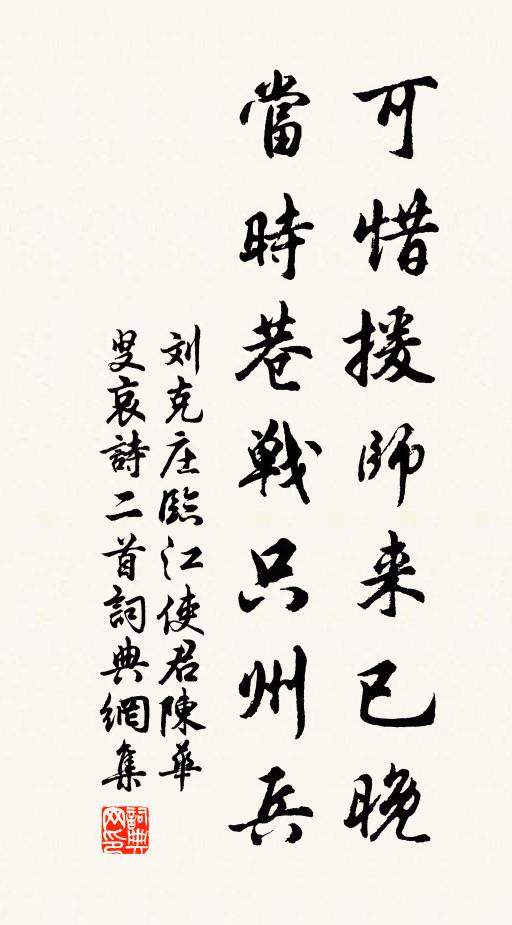 可惜援師来已晚
當時巷戦只州兵
刘克庄臨江使君陳華
叟哀詩二首詞典網集
詞典网印